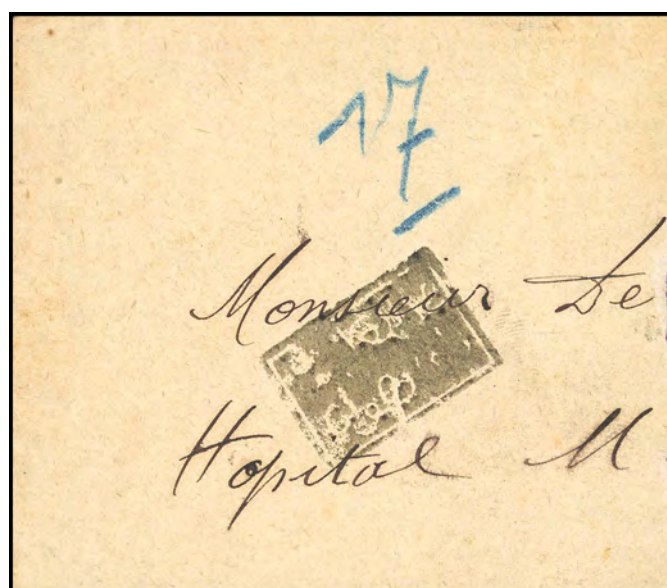 17
Monsieur De
Hopital M